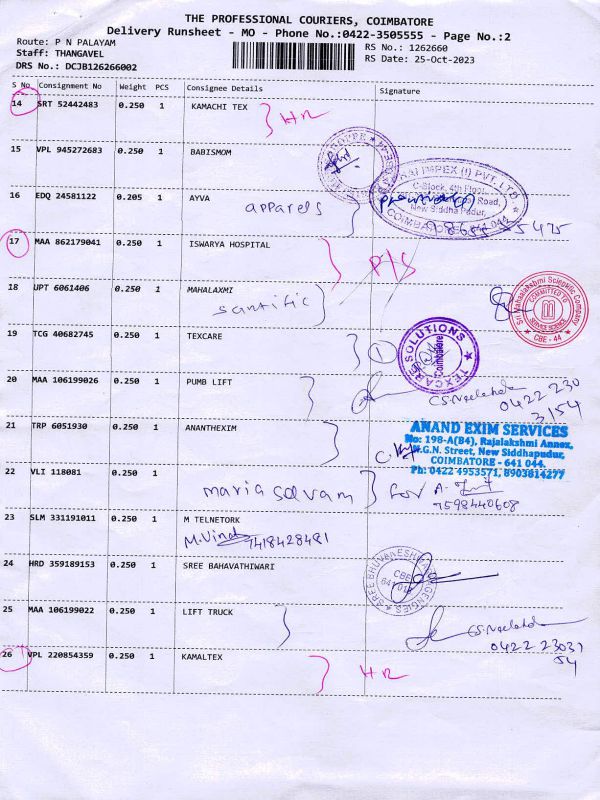 THE PROFESSIONAL COURIERS, COIMBATORE
Delivery Runsheet - MO - Phone No.:0422-3505555 - Page No.:2
Route: P N PALAYAM
RS No.: 1262660
Staff: THANGAVEL
RS Date: 25-Oct-2023
DRS No.: DCJB126266002
S No Consignment No Weight PCS Consignee Details Signature
14 SRT 52442483 0.250 1 KAMACHI TEX
15 VPL 945272683 0.250 1 BABISMOM
16 EDQ 24581122 0.205 1 AYVA
apparels
IMPEX (I) PVT. LTD.
C-Block, 4th Floor,
Road,
New Siddha Pudur,
17 MAA 862179041 0.250 1 ISWARYA HOSPITAL
18 UPT 6061406 0.250 1 MAHALAXMI
Sri Mahalakshmi Scientific Company
COMMITTED TO
SERVICE SCIENCE
CBE - 44
19 TCG 40682745 0.250 1 TEXCARE
1
TEXCARE SOLUTIONS
Coimbatore
20 MAA 106199026 0.250 1 PUMB LIFT
0422 230
3154
21 TRP 6051930 0.250 1 ANANTHEXIM
ANAND EXIM SERVICES
No: 198-A(B4), Rajalakshmi Annex,
M.G.N. Street, New Siddhapudur,
COIMBATORE - 641 044.
Ph: 0422 4953571, 8903814277
22 VLI 118081 0.250 1
maria selvam
for A.
7598440608
23 SLM 331191011 0.250 1 M TELNETORK
M.Vinoth 7418428481
24 HRD 359189153 0.250 1 SREE BAHAVATHIWARI
SREE BHUVANESHWARI AGENCIES
CBE
25 MAA 106199022 0.250 1 LIFT TRUCK
0422 23031
54
26 VPL 220854359 0.250 1 KAMALTEX